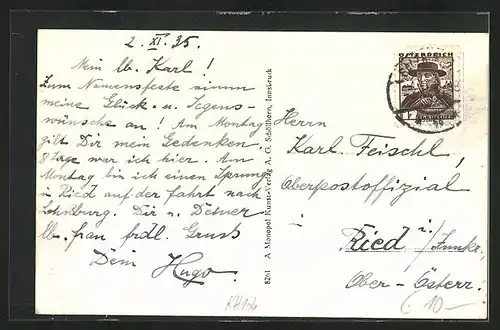 2. XI. 35.
Mein lb. Karl!
Zum Namensfeste nimm
meine Glück- u. Segens-
wünsche an! Am Montag
gibt Dir mein Gedenken.
8 Tage war ich hier. Am
Montag bin ich einen Sprung
in Ried auf der Fahrt nach
Lohnsburg. Dir u. Deiner
lb. Frau frdl. Gruß
Dein Hugo.
8261 A Monopol Kunst-Verlag A. G. Schöllhorn, Innsbruck
ÖSTERREICH
12
Herrn
Karl Feischl,
Oberpostoffizial
i
Ried i./Innkr.,
Ober-Österr.
10-